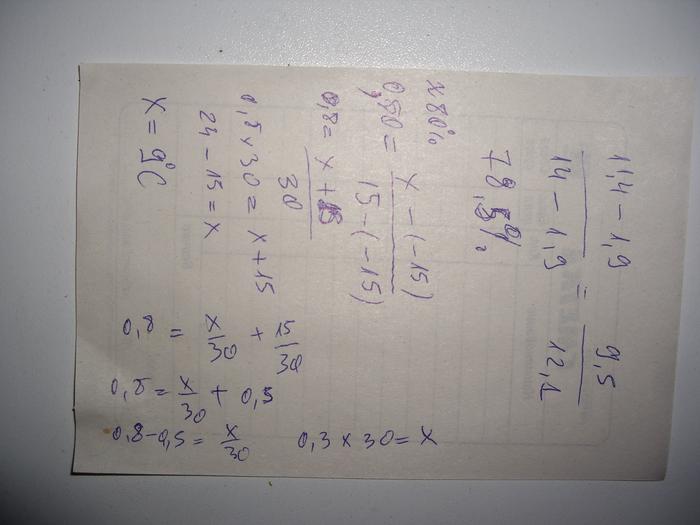 11,4 - 1,9 / 14 - 1,9 = 9,5 / 12,1
78,5%
x 80%
0,80 = x - (-15) / 15 - (-15)
0,8 = x + 15 / 30
0,8 x 30 = x + 15
24 - 15 = x
x = 9°C
0,8 = x/30 + 15/30
0,8 = x/30 + 0,5
0,8 - 0,5 = x/30
0,3 x 30 = x